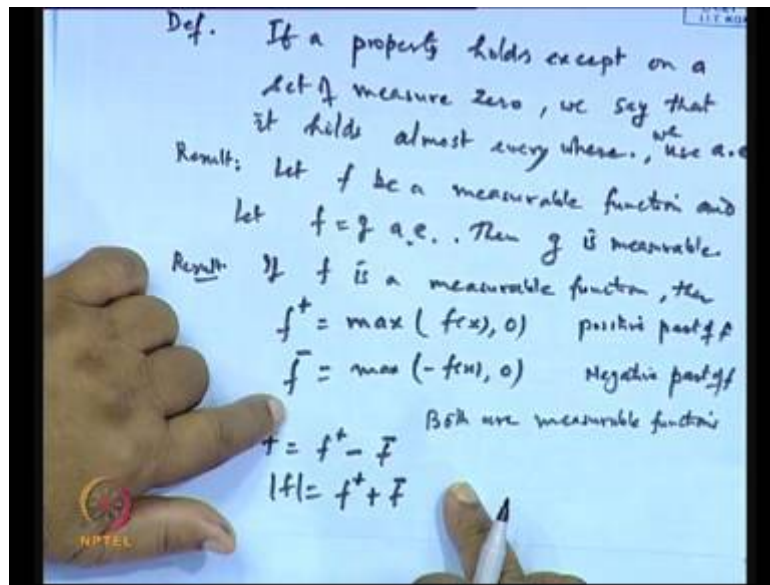 Def. If a property holds except on a
set of measure zero, we say that
it holds almost every where., we use a.e
Result: Let f be a measurable function and
let f = g a.e.. Then g is measurable.
Result. If f is a measurable function, then
f⁺ = max ( f(x), 0) positive part of f
f⁻ = max (-f(x), 0) Negative part of f
Both are measurable functions
f = f⁺ - f⁻
|f| = f⁺ + f⁻
NPTEL